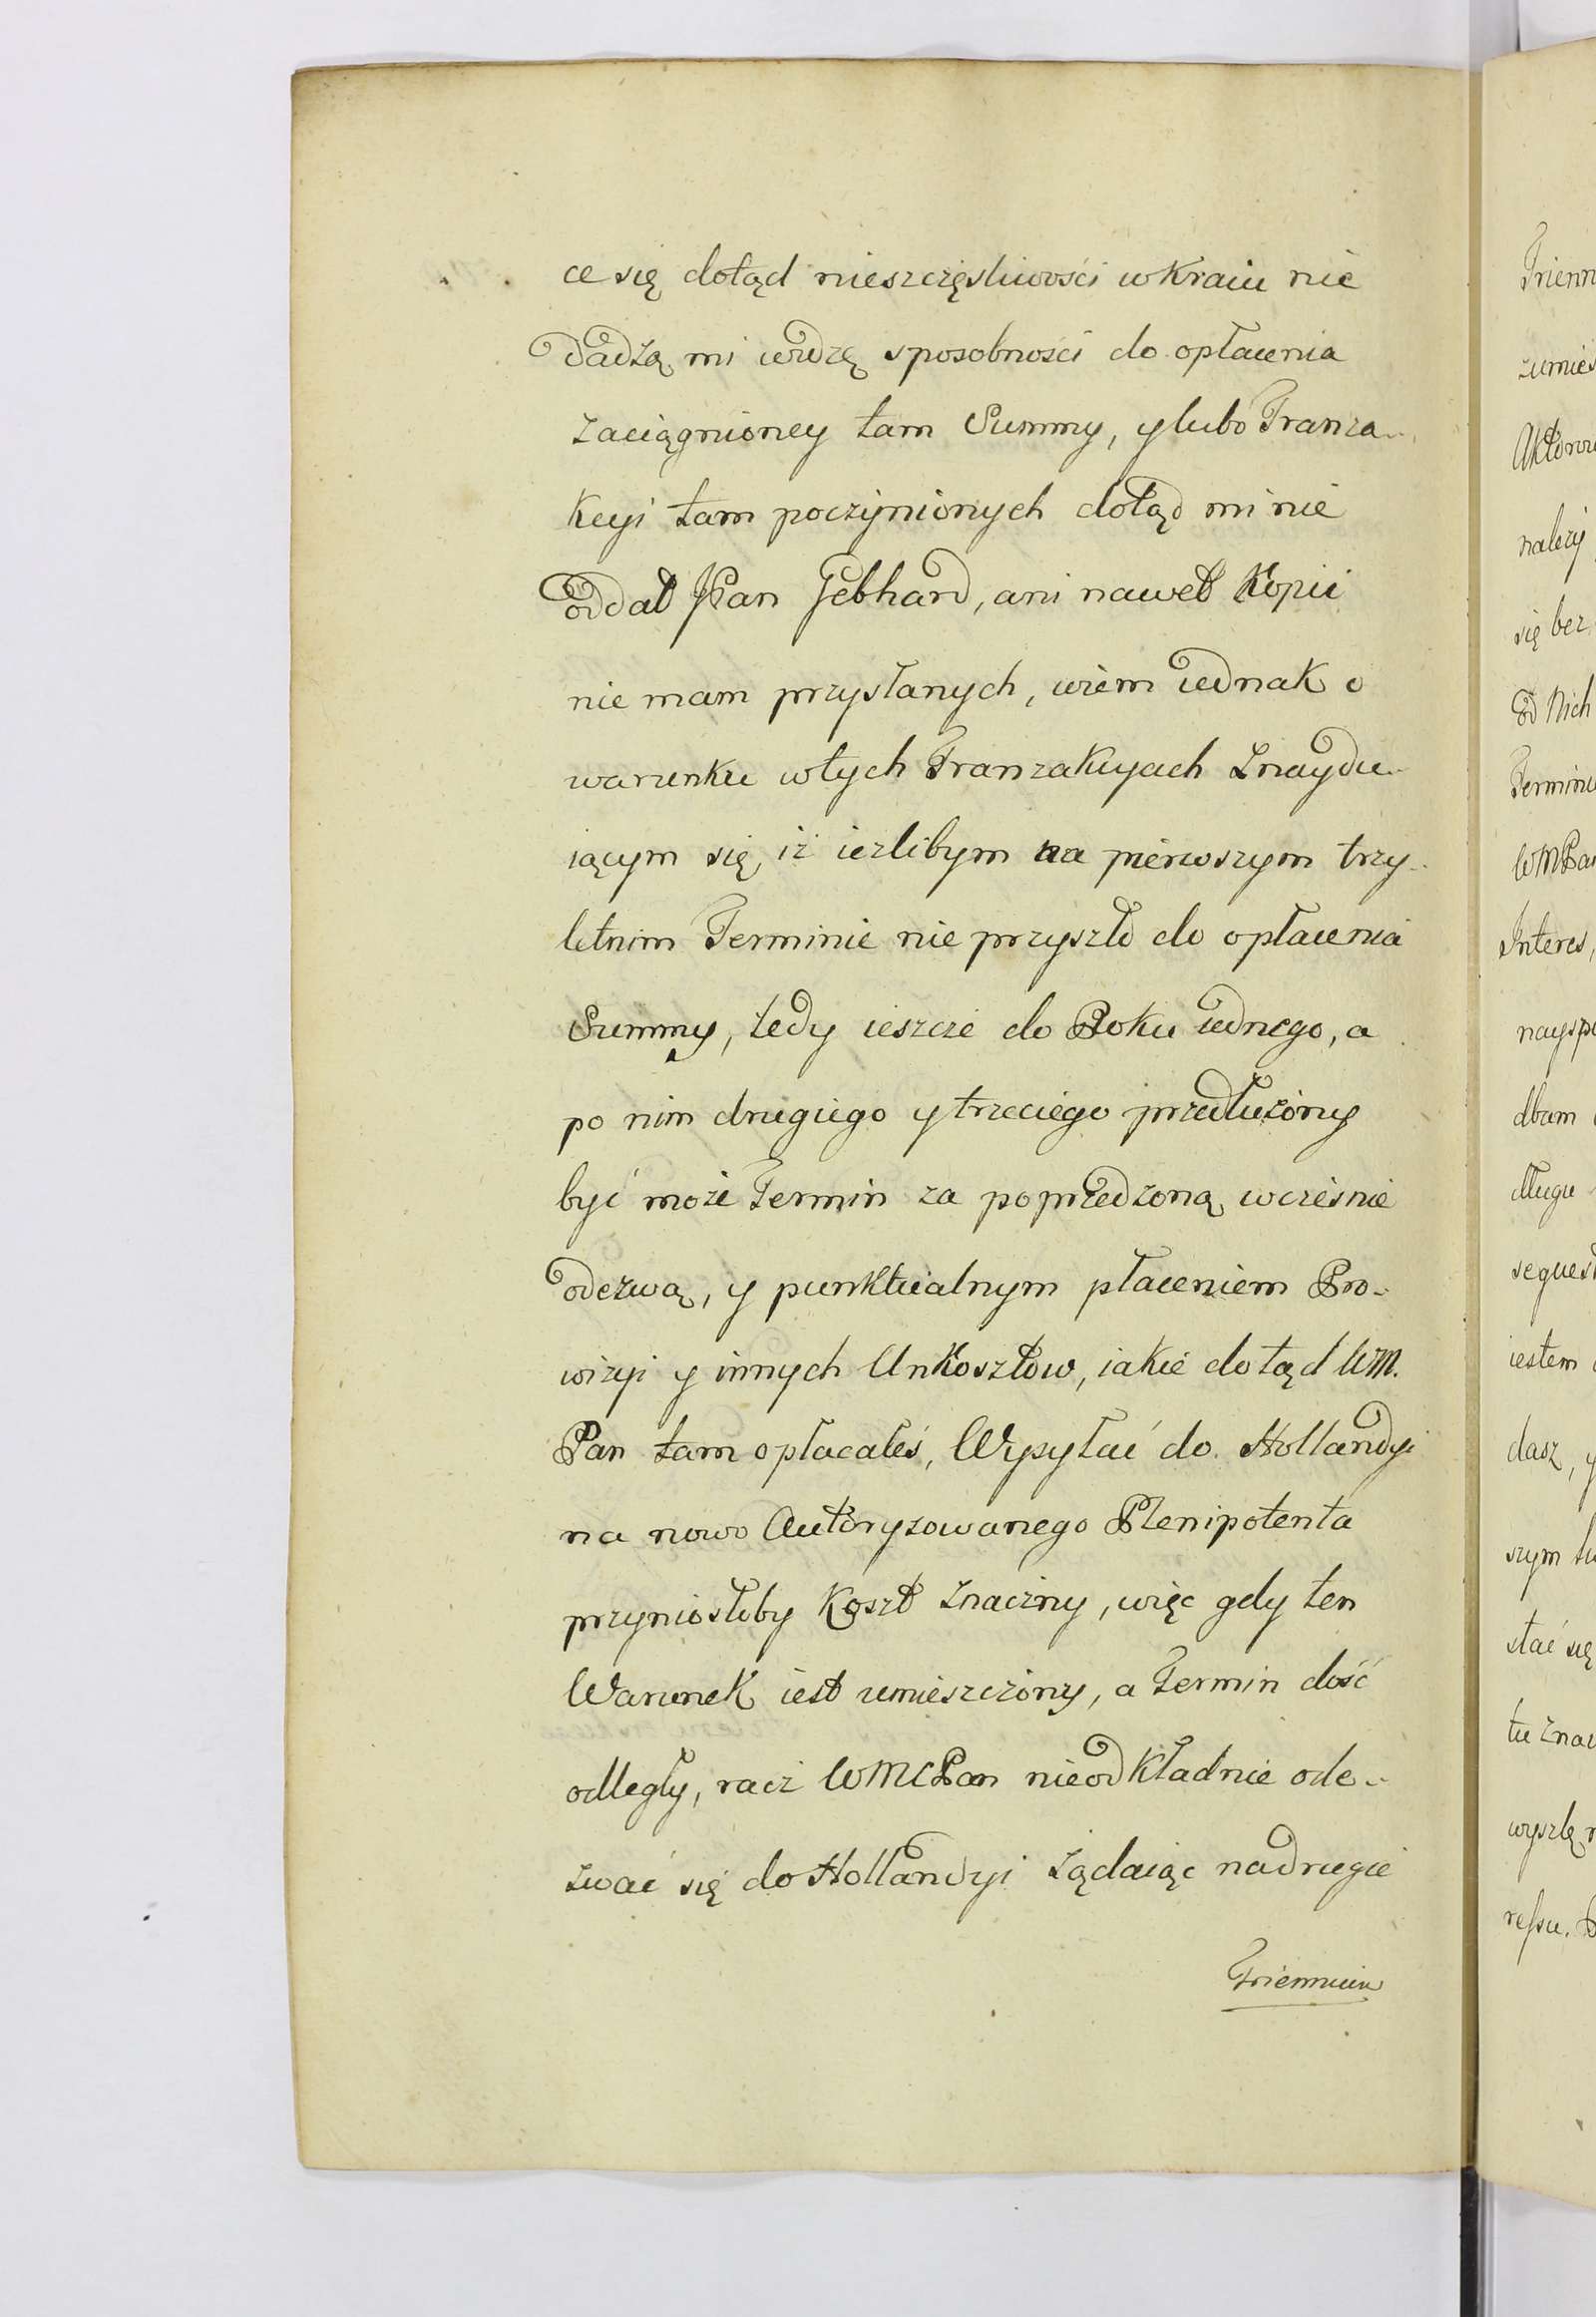 ce się dotąd nieszczęsliwości w kraiu nie
dadzą mi widzę sposobności do opłacenia
zaciągnioney tam Summy, y lubo Tranza-
kcyi tam poczynionych dotąd mi nie
oddał JPan Gebhard, ani nawet Kopii
nie mam przysłanych, wiem iednak o
warunku w tych Tranzakcyach znaydu-
iącym się, iż ieżlibym na pierwszym trzy-
letnim Terminie nie przyszło do opłacenia
Summy, tedy ieszcze do Roku iednego, a
po nim drugiego y trzeciego przedłużony
być może Termin za poprzedzoną wcześnie
odezwą, y punktualnym płaceniem Pro-
wizyi y innych Unkosztow, iakie dotąd WM.
Pan tam opłacałeś, Wysyłać do Hollandyi
na nowo Autoryzowanego Plenipotenta
przyniosłoby Koszt znaczny, więc gdy ten
Warunek iest umieszczony, a Termin dość
odległy, racz WMCPan nieodkładnie ode-
zwać się do Hollandyi żądaiąc na drugie
Triennium
Trienn
zumies
Aktorow
należy
się bez
od Nich
Terminu
WMPan
Interes,
nayspo
dbam
długu
sequest
iestem
dasz, y
szym tu
stać się
tu znac
wyszlę
ressu.